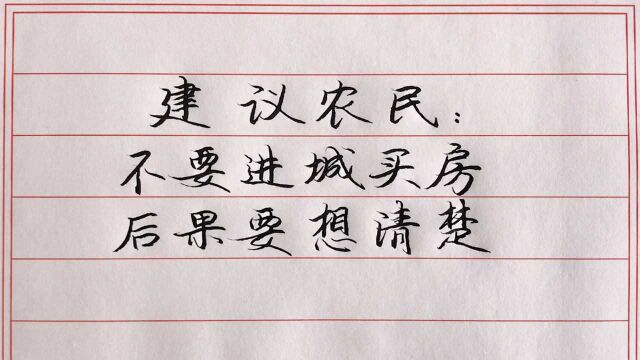 建议农民：
不要进城买房
后果要想清楚